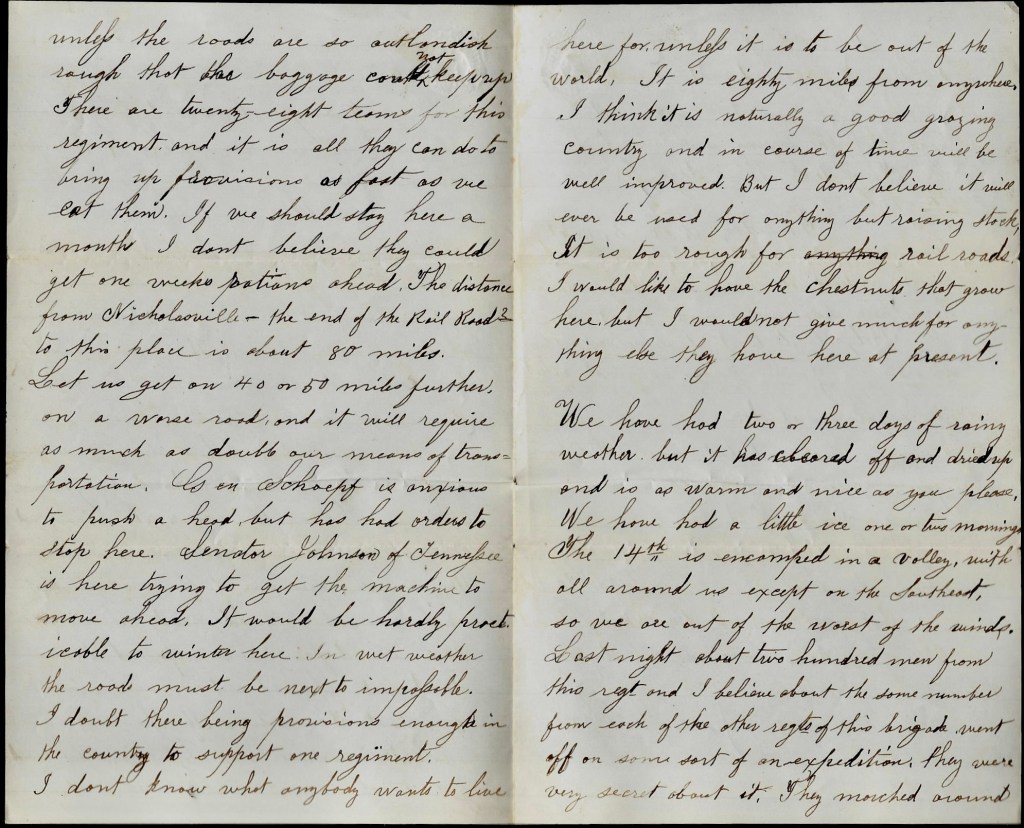 unless the roads are so outlandish
rough that the baggage could not keep up
There are twenty-eight teams for this
regiment. and it is all they can do to
bring up provisions as fast as we
eat them. If we should stay here a
month I dont believe they could
get one weeks rations ahead. The distance
from Nicholasville - the end of the Rail Road
to this place is about 80 miles.
Let us get on 40 or 50 miles further,
on a worse road, and it will require
as much as double our means of trans=
portation. Gen Schoepf is anxious
to push a head, but has had orders to
stop here. Senator Johnson of Tennessee
is here trying to get the machine to
move ahead. It would be hardly pract-
icable to winter here. In wet weather
the roads must be next to impossible.
I doubt there being provisions enough in
the country to support one regiment.
I dont know what anybody wants to live
here for, unless it is to be out of the
world. It is eighty miles from anywhere.
I think it is naturally a good grazing
country and in course of time will be
well improved. But I dont believe it will
ever be used for anything but raising stock,
It is too rough for anything rail roads.
I would like to have the chestnuts that grow
here, but I would not give much for any-
thing else they have here at present.
We have had two or three days of rainy
weather. but it has cleared off and dried up
and is as warm and nice as you please.
We have had a little ice one or two mornings
The 14th is encamped in a valley, with
all around us except on the Southeast,
so we are out of the worst of the winds.
Last night about two hundred men from
this regt and I believe about the same number
from each of the other regts of this brigade went
off on some sort of an expedition. They were
very secret about it. They marched around